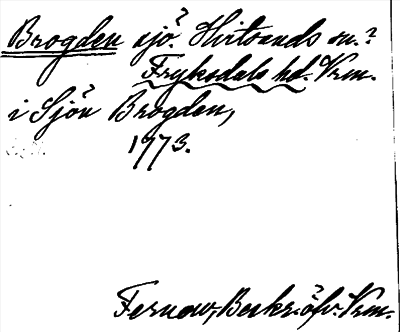 Brogden sjö? Hvitsands sn.?
Fryksdals hd. Vrm.
i Sjön Brogden,
1773.
Fernow, Beskr. öfv. Vrm.